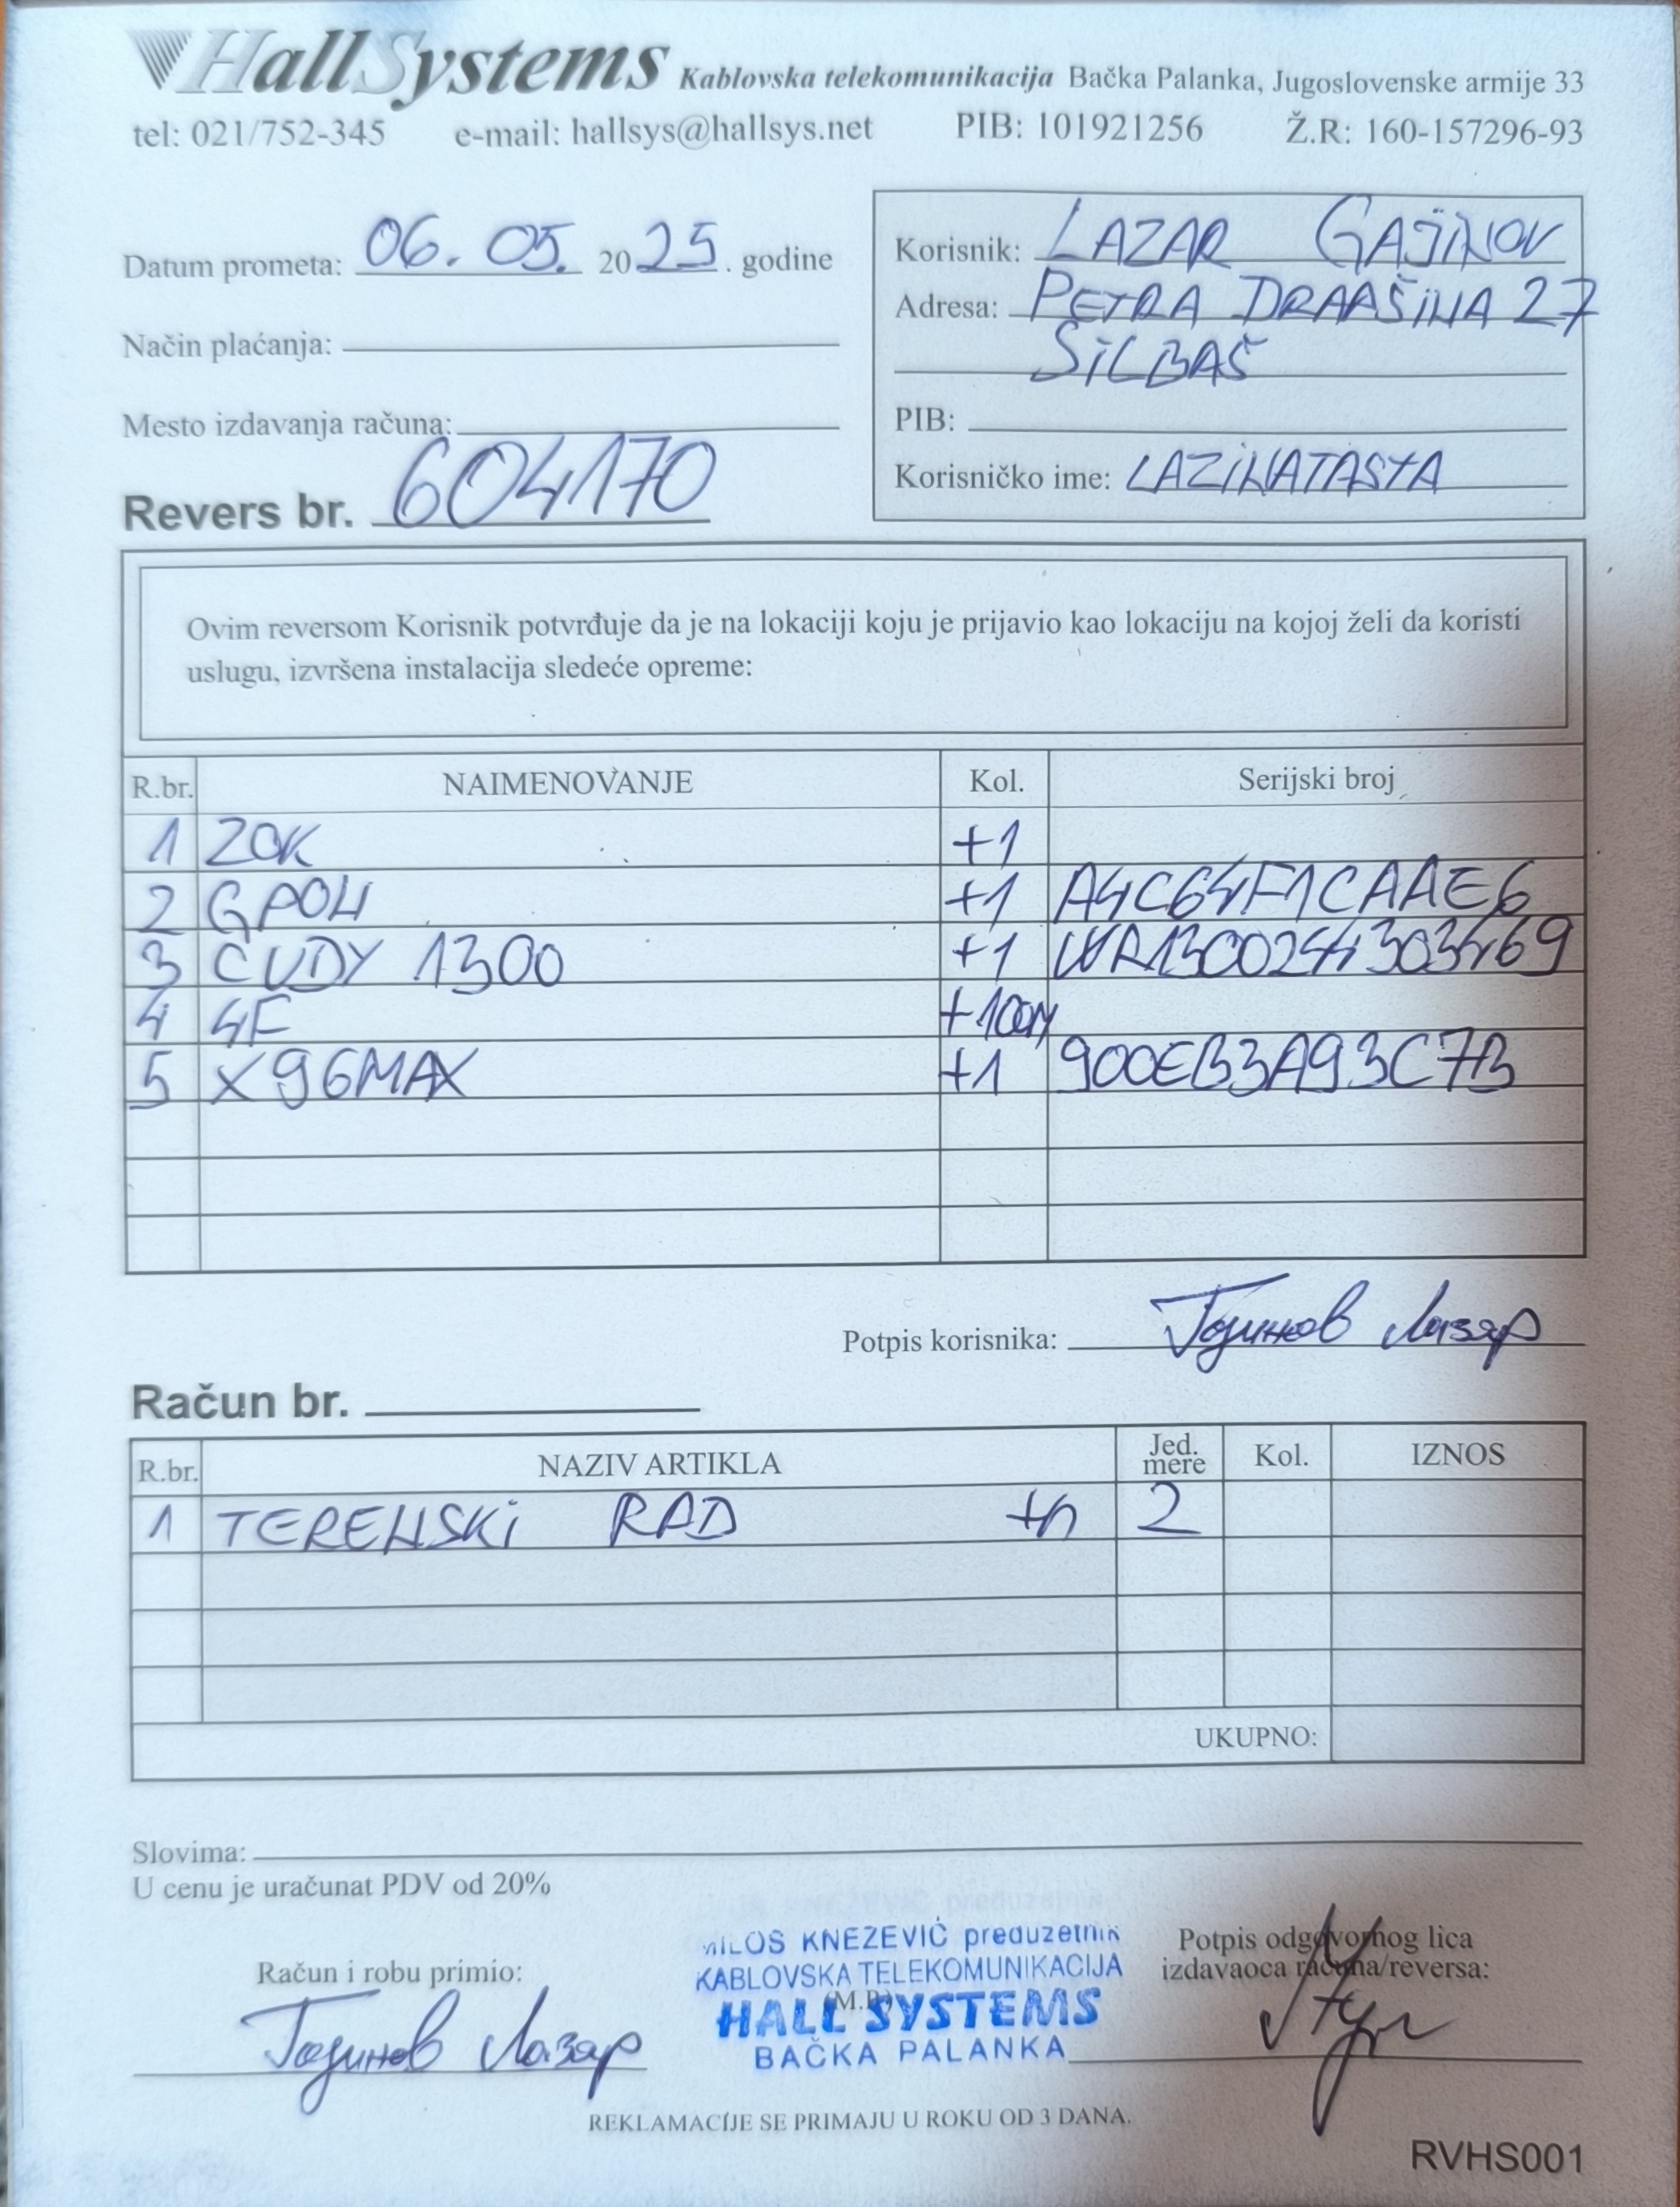 HallSystems Kablovska telekomunikacija Bačka Palanka, Jugoslovenske armije 33
tel: 021/752-345 e-mail: hallsys@hallsys.net PIB: 101921256 Ž.R: 160-157296-93
Datum prometa: 06. 05. 2025. godine
Način plaćanja:
Mesto izdavanja računa:
Revers br. 604170
Korisnik: LAZAR GAJINOV
Adresa: PETRA DRAPŠINA 27
SILBAŠ
PIB:
Korisničko ime: LAZINATASTA
Ovim reversom Korisnik potvrđuje da je na lokaciji koju je prijavio kao lokaciju na kojoj želi da koristi
uslugu, izvršena instalacija sledeće opreme:
R.br. NAIMENOVANJE Kol. Serijski broj
1 ZOK +1
2 GPON +1 A4C64F1CAAE6
3 CUDY 1300 +1 WR1300244303469
4 4F +100M
5 X96MAX +1 900EB3A93C7B
Potpis korisnika: Гајинов Лазар
Račun br.
R.br. NAZIV ARTIKLA Jed. mere Kol. IZNOS
1 TERENSKI RAD +h 2
UKUPNO:
Slovima:
U cenu je uračunat PDV od 20%
Račun i robu primio:
Гајинов Лазар
MILOŠ KNEŽEVIĆ preduzetnik
KABLOVSKA TELEKOMUNIKACIJA
(M.P.)
HALL SYSTEMS
BAČKA PALANKA
Potpis odgovornog lica
izdavaoca računa/reversa:
REKLAMACIJE SE PRIMAJU U ROKU OD 3 DANA.
RVHS001